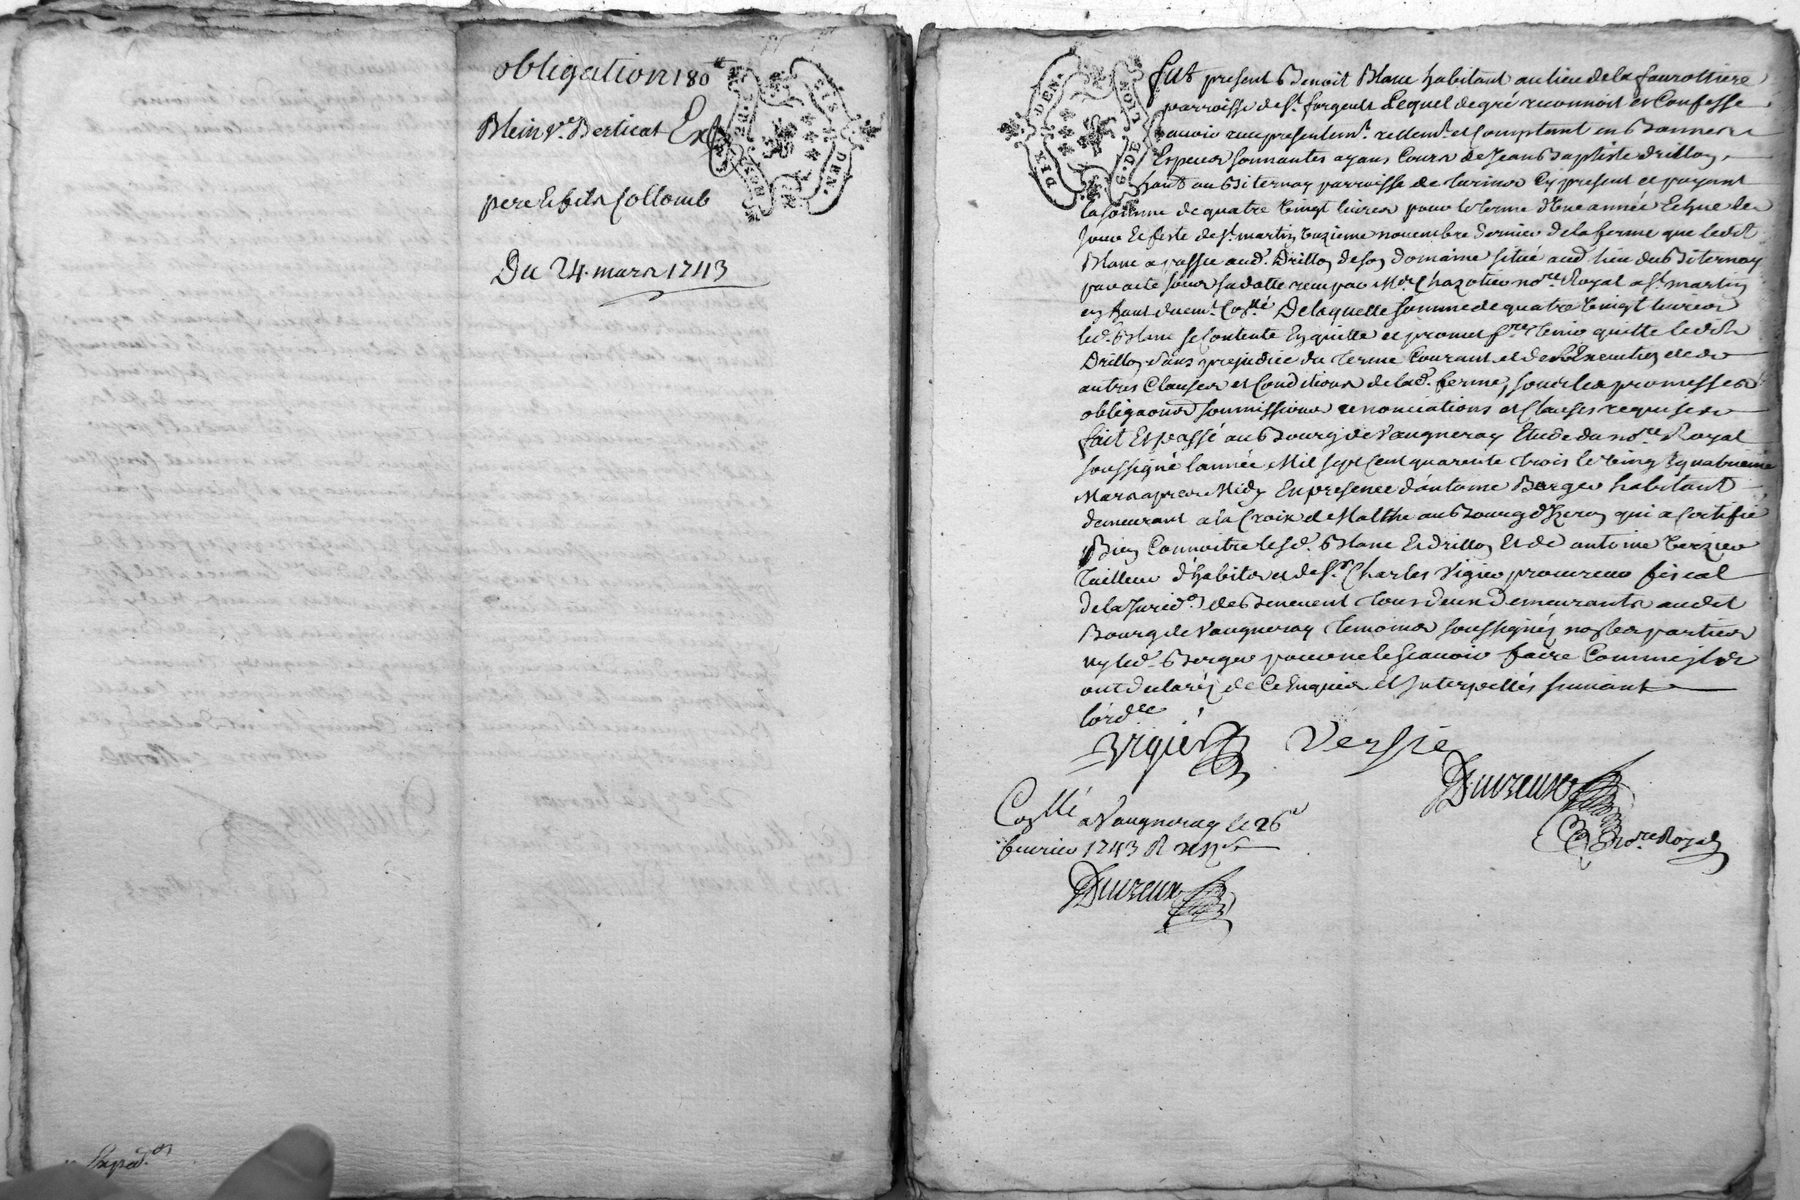 obligation 180ᵗᵗ
Blein vᵉ Berticat Ex
pere et fils Collomb
Du 24 mars 1743
Exped.ᵒⁿ
DIX DEN.
G. DE LYON
fut present Benoit Blanc habitant au lieu de la
parroisse de sᵗ forgeult Lequel de gré reconnoit et Confesse
avoir reçu presentemᵗ. reellemᵗ. et Comptant en Bonnes
Especes sonnantes ayans Cours de Jean Baptiste drillon
habᵗ au Biternay parroisse de et payant
la somme de quatre vingt livres pour le terme d'une année Echue le
Jour et feste de sᵗ martin unzieme novembre dernier de la ferme que ledit
Blanc a passée audᵗ. Drillon de son domaine situé audᵗ. lieu du Biternay
par acte sous sa datte reçu par Mᵉ Chazotier noʳᵉ Royal a sᵗ martin
en haut duemᵗ. Coⁿˡᵉ́ De laquelle somme de quatre vingt livres
ledᵗ. Blanc se Contente En quitte et promet fʳᵉ tenir quitte ledit
Drillon sans prejudice du terme Courant et de l'Execution
autres Clauses et Conditions de ladᵗ. ferme, sous les promesses
obligaons soumissions renonciations et Clauses requises
fait Et passé au Bourg de Vaugneray Etude du noʳᵉ Royal
soussigné l'année Mil sept Cent quarente trois le vingt quatrieme
Mars apres Midy En presence d'antoine Berger habitant
demeurant a la Croix de Malthe au Bourg d' qui a Certifié
Bien Connoitre lesdᵗ. Blanc Et drillon Et de antoine Verzier
tailleur d'habits et de sʳ Charles Vigier procureur fiscal
de la Juridᵒⁿ de Benevent tous deux demeurants audit
Bourg de Vaugneray temoins soussignés non les parties
ny ledᵗ. Berger pour ne le scavoir faire Comme ils
ont declarés de Ce Enquis et Interpellés suivant
l'ordᶜᵉ
Vigier Versie
Duvreux
noʳᵉ Royal
Coⁿˡˡᵉ́ a Vaugneray le 26ᵉ
fevrier 1743 R
Duvreux